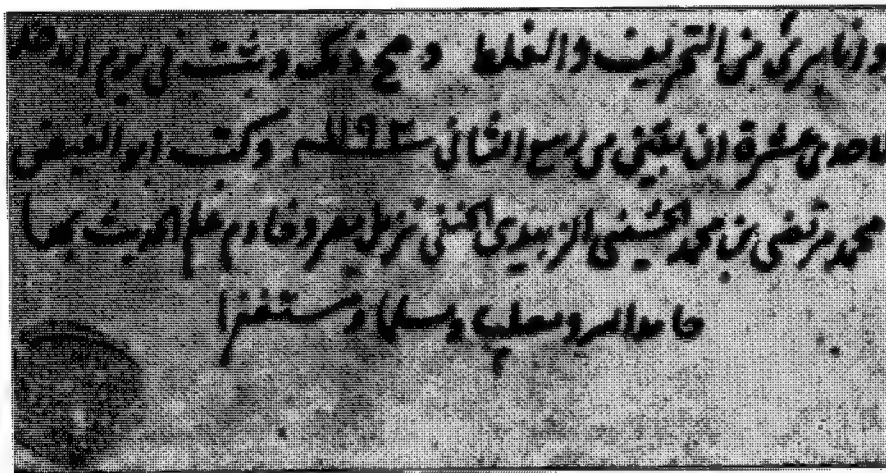 وانا بري من التحريف والغلط وصح ذلك وثبت في يوم الاحد
لاحدى عشرة ان بقين من ربيع الثاني سنة ١١٩٣ وكتب ابو الفيض
محمد مرتضى بن محمد الحسيني الزبيدي الحنفي نزيل مصر وخادم علم الحديث بها
حامدا لله ومصليا ومسلما ومستغفرا